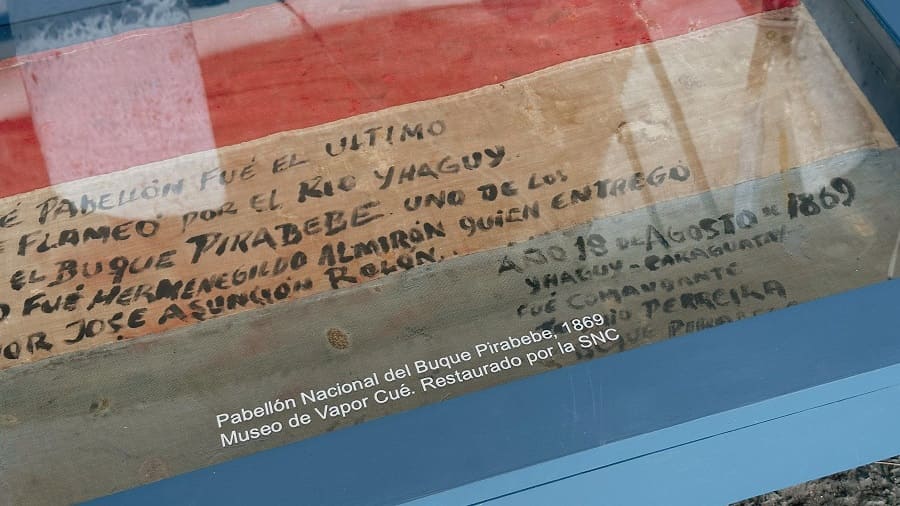 É PABELLÓN FUÉ EL ULTIMO
E FLAMEÓ POR EL RIO YHAGUY
EL BUQUE PIRABEBE. UNO DE LOS
O FUÉ HERMENEGILDO ALMIRÓN QUIEN ENTREGÓ
OR JOSE ASUNCION ROLÓN.
AÑO 18 DE AGOSTO DE 1869
YHAGUY - CARAGUATAY
FUÉ COMANDANTE
PERREIRA
BUQUE
Pabellón Nacional del Buque Pirabebe, 1869
Museo de Vapor Cué. Restaurado por la SNC